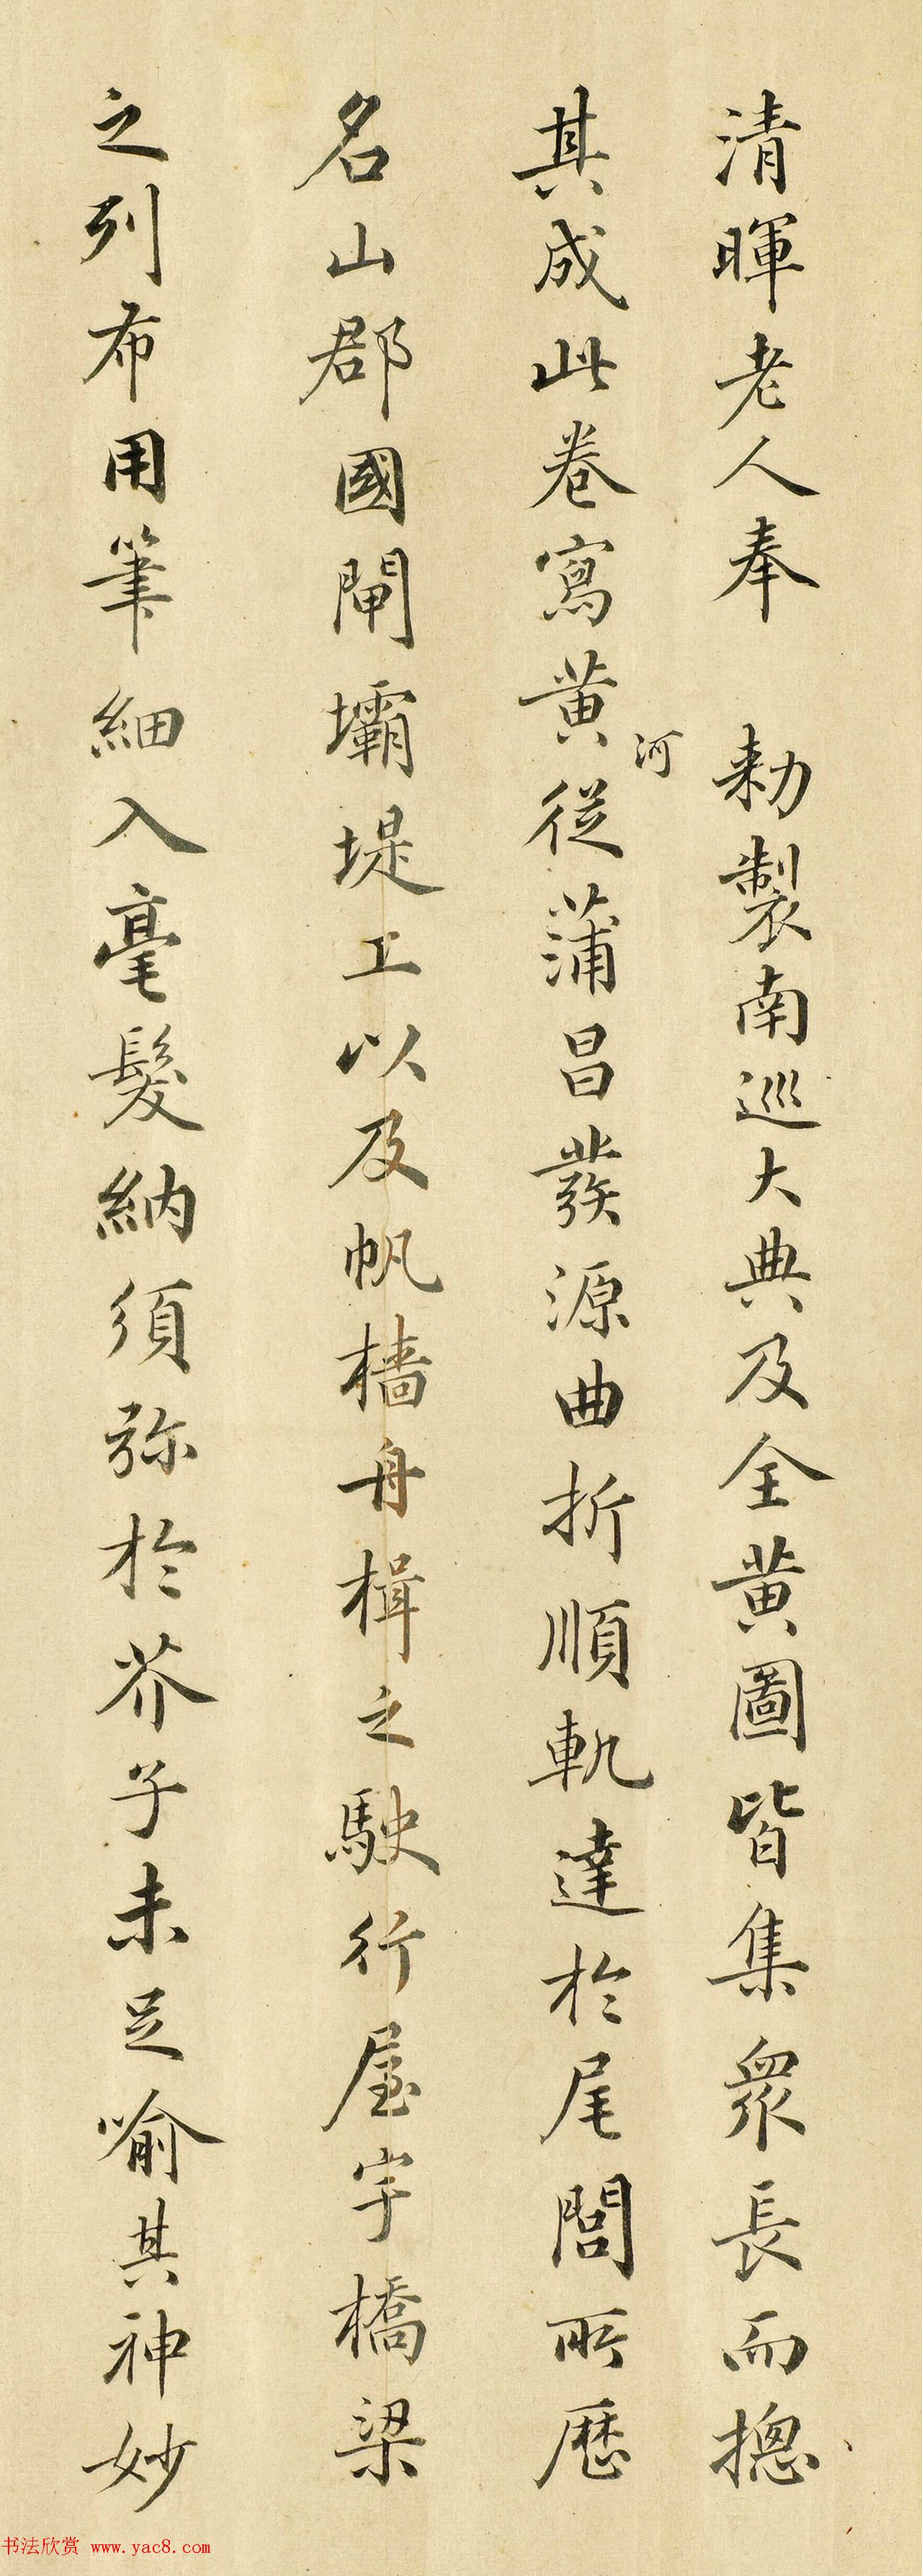 清暉老人奉 勅製南巡大典及全黄圖皆集衆長而摠
其成此卷寫黄河從蒲昌發源曲折順軌達於尾閭所歷
名山郡國閘壩堤工以及帆檣舟楫之駛行屋宇橋梁
之列布用筆細入毫髮納須弥於芥子未足喻其神妙
书法欣赏 www.yac8.com